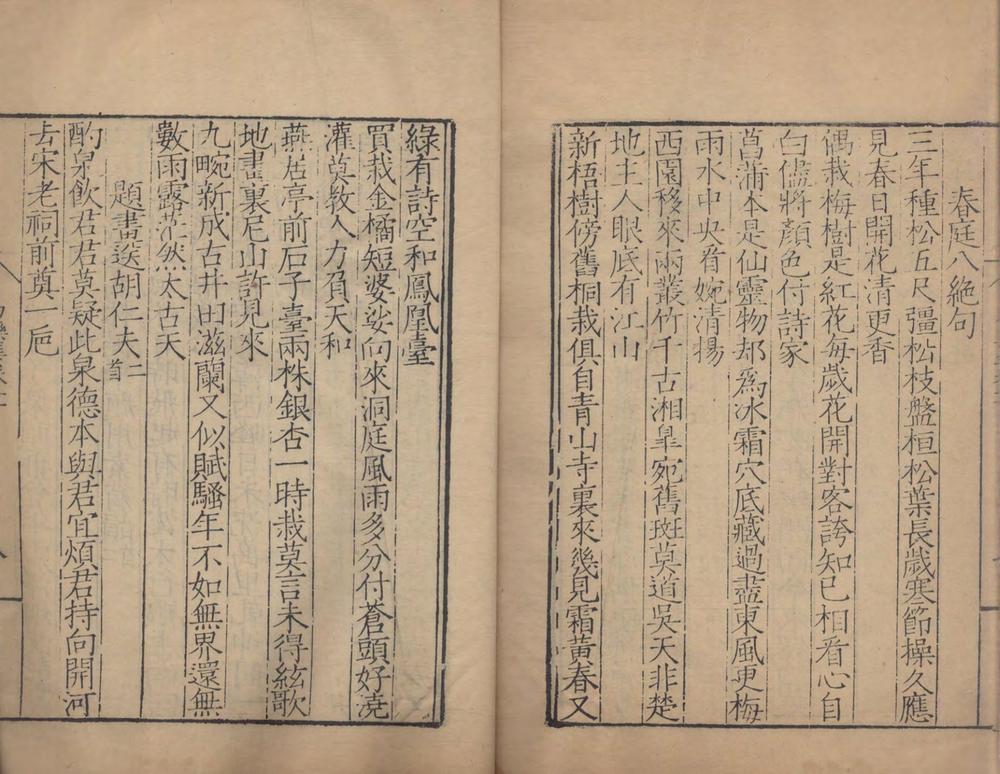 春庭八絶句
三年種松五尺彊松枝盤桓松葉長歲寒節操久應
見春日開花清更香
偶栽梅樹是紅花每歲花開對客誇知已相看心自
白儘將顏色付詩家
菖蒲本是仙靈物却爲冰霜穴底藏過盡東風更梅
雨水中央看婉清揚
西園移來兩叢竹千古湘皐宛舊斑莫道吳天非楚
地主人眼底有江山
新梧樹傍舊桐栽俱自青山寺裏來幾見霜黃春又
綠有詩空和鳳凰臺
買栽金橘短婆娑向來洞庭風雨多分付蒼頭好澆
灌莫教人力負天和
燕居亭前石子臺兩株銀杏一時栽莫言未得絃歌
地晝裏尼山許見來
九畹新成古井田滋蘭又似賦騷年不如無界還無
數雨露茫然太古天
題書送胡仁夫二首
酌泉飲君君莫疑此泉德本與君宜煩君持向開河
去宋老祠前奠一巵